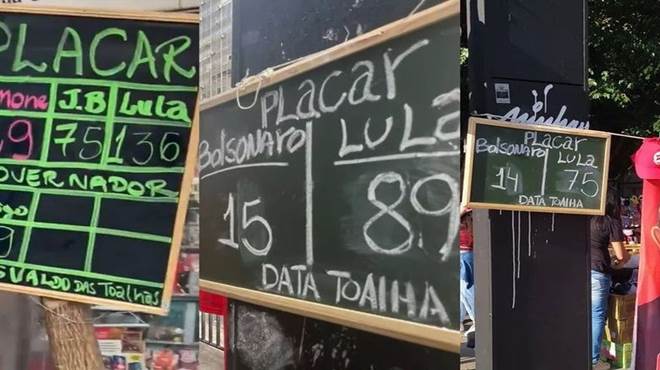 PLACAR
J.B Lula
75 136
OVERNADOR
SVALDO DAS TOALHAS
PLACAR
BOLSONARO LULA
15 89
DATA TOALHA
PLACAR
BOLSONARO LULA
14 75
DATA TOALHA